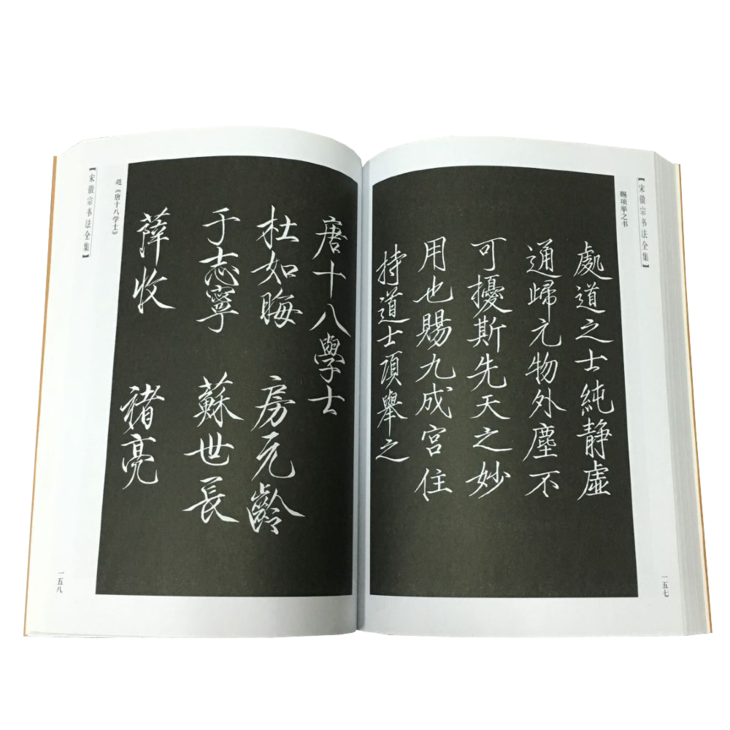 【宋徽宗书法全集】
赐项举之书
處道之士純静虛
通歸元物外塵不
可擾斯先天之妙
用也賜九成宫住
持道士項舉之
一五七
唐十八學士
杜如晦 房元齡
于志寧 蘇世長
薛收 褚亮
题《唐十八学士》
【宋徽宗书法全集】
一五八